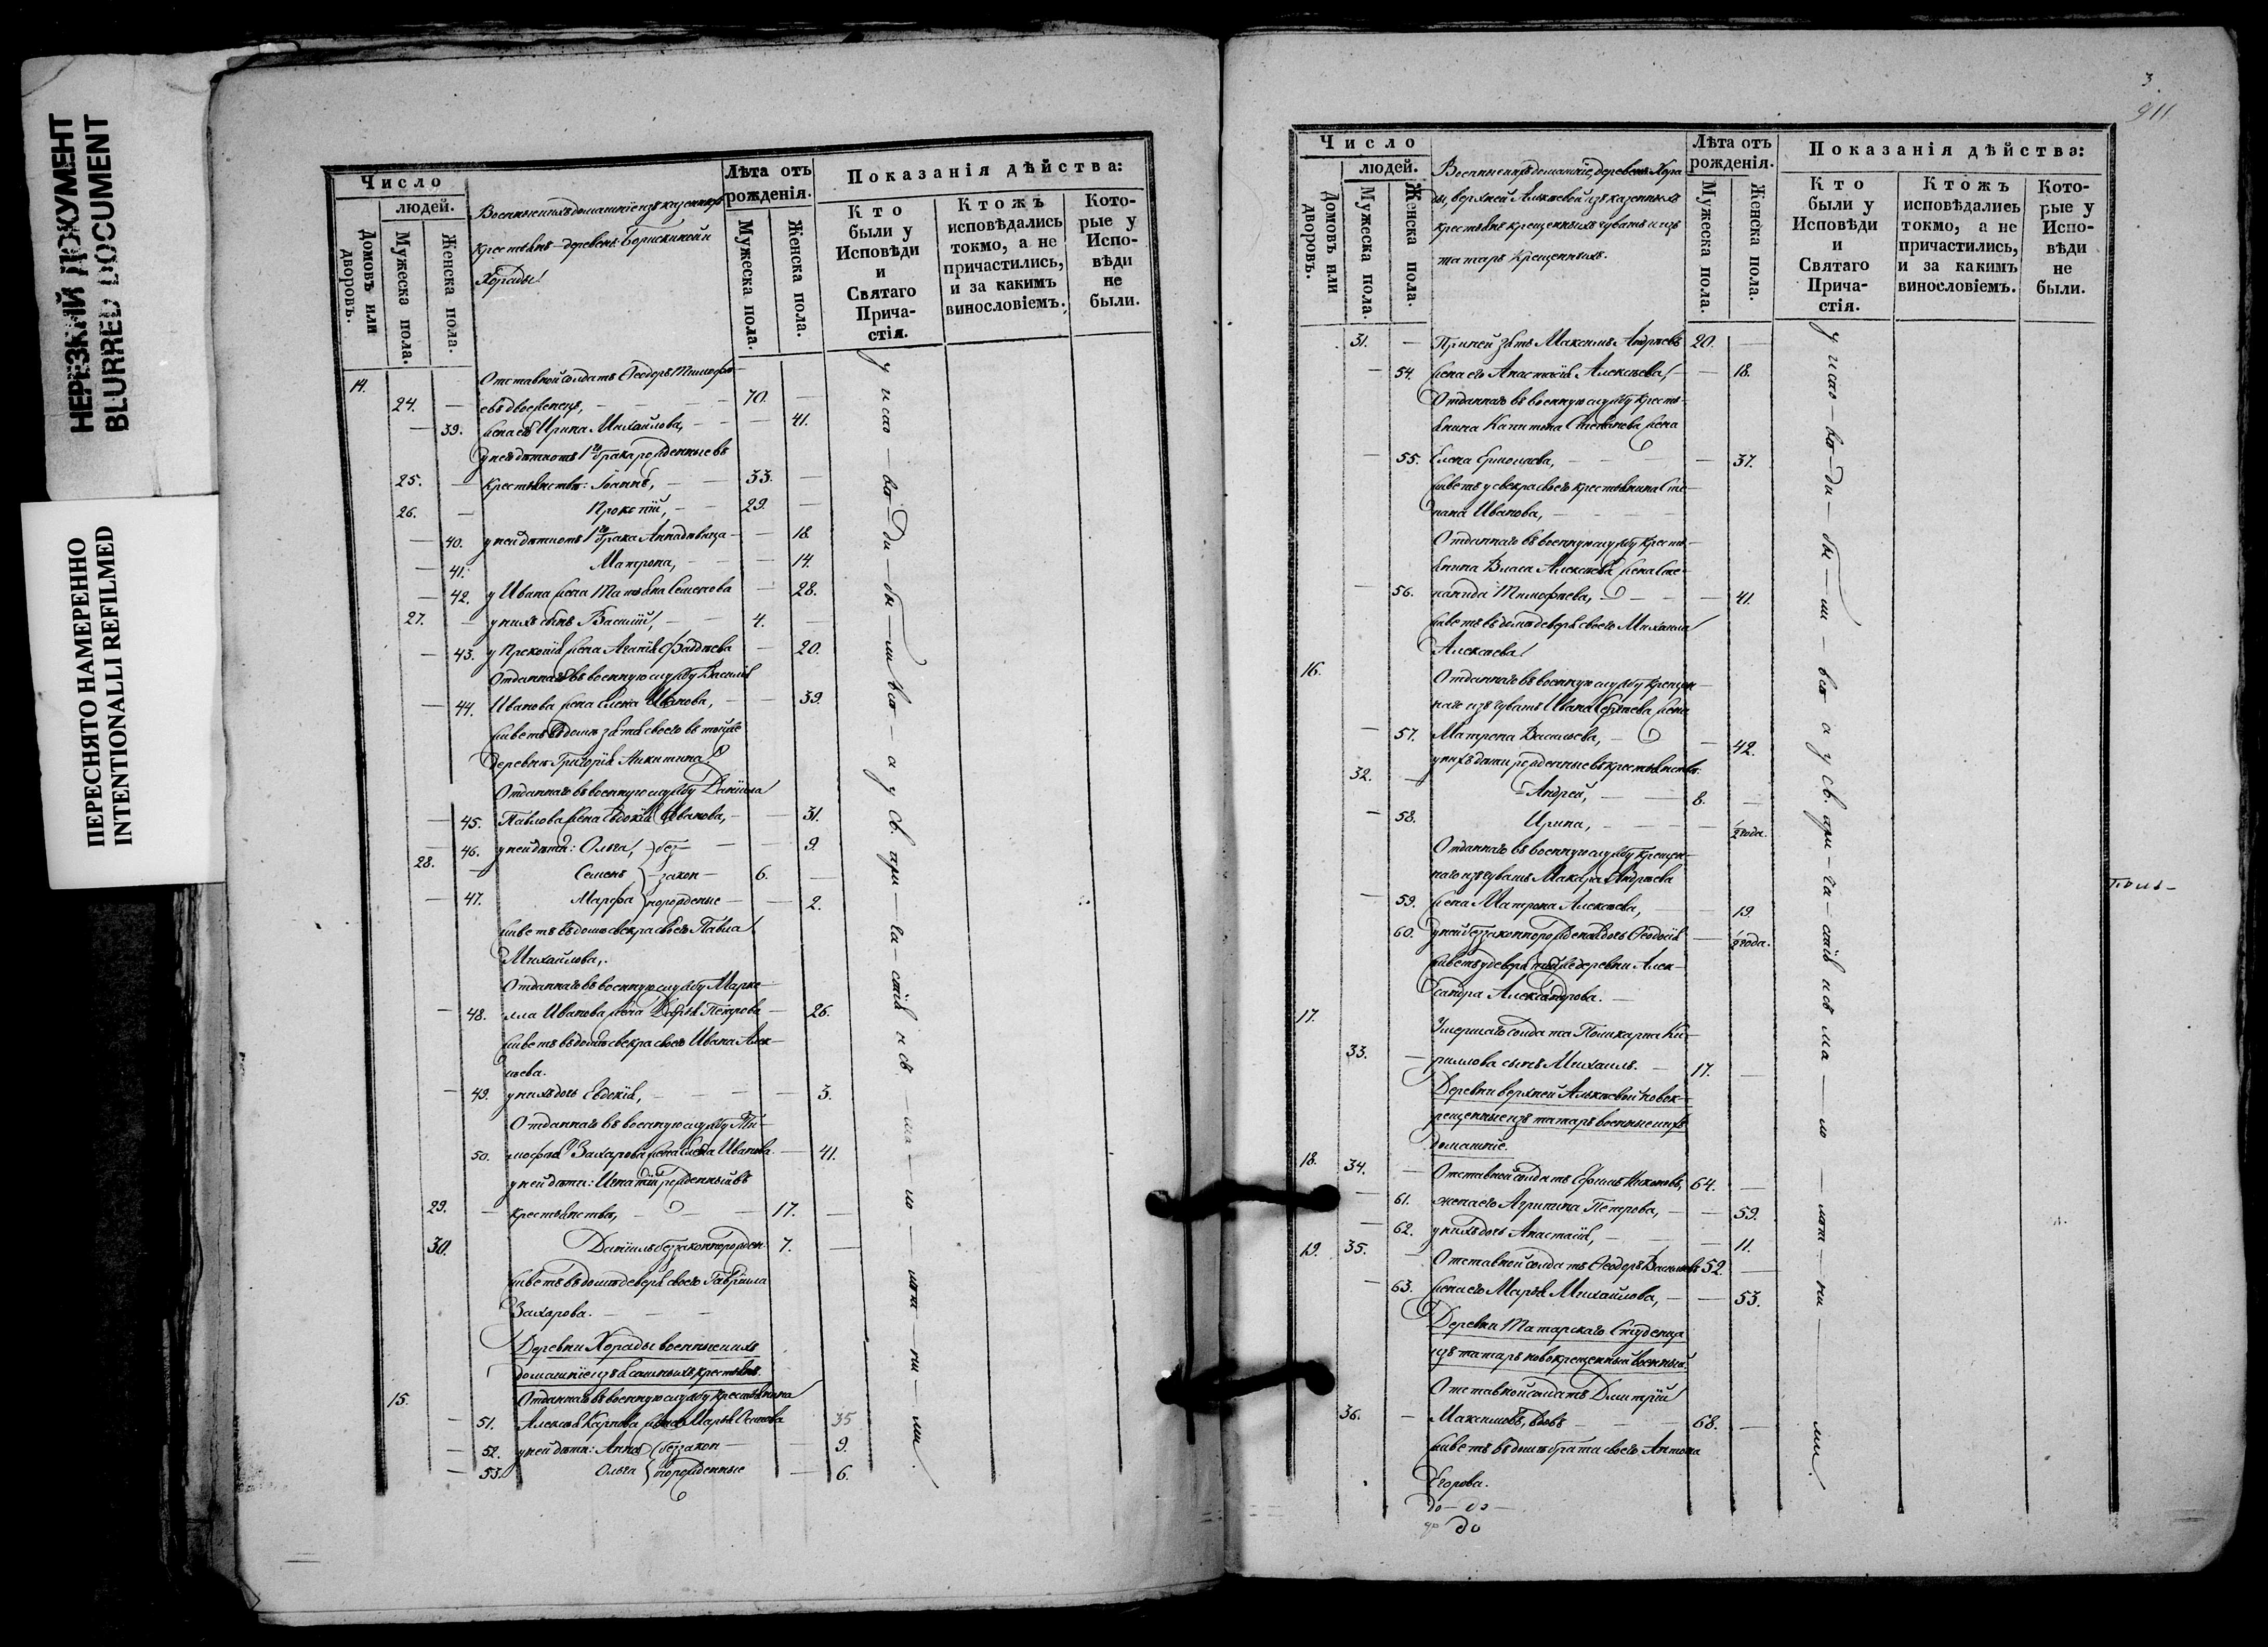 НЕРЕЗКИЙ ДОКУМЕНТ
BLURRED DOCUMENT
ПЕРЕСНЯТО НАМЕРЕННО
INTENTIONALLI REFILMED
Число
людей.
Домовъ или дворовъ.
Мужеска пола.
Женска пола.
Военные ихъ домашніе изъ казенныхъ
крестьянъ – деревень: Борискиной и
Хорады
Лѣта отъ рожденія.
Мужеска пола.
Женска пола.
Показанія дѣйства:
Кто были у Исповѣди и Святаго Прича-стія.
Ктожъ исповѣдались токмо, а не причастились, и за какимъ винословіемъ.
Кото-рые у Испо-вѣди не были.
14. Отставной солдатъ Ѳеодоръ Тимоѳе-
24. — евъ двоеженецъ, — 70. —
— 39. жена его Ирина Михайлова, — 41.
у нея дѣти отъ 1го брака рожденные въ
25. — крестьянствѣ: Іоаннъ, — 33. —
26. — Прокопій, — 29. —
— 40. у ней дѣти отъ 1го брака Анна дѣвица — 18.
— 41. Матрона, — 14.
— 42. у Ивана жена Татьяна Семенова — 28.
27. — у нихъ сынъ Василій, — 4. —
— 43. у Прокопія жена Агапія Фаддѣева — 20.
Отданнаго въ военную службу Василія
— 44. Иванова жена Елена Иванова, — 39.
живетъ въ домѣ зятя своего въ той же
деревнѣ Григорія Никитина.
Отданнаго въ военную службу Даніила
— 45. Павлова жена Евдокія Иванова, — 31.
— 46. у ней дѣти: Ольга, без- — 9.
28. — Семенъ закон- 6. —
— 47. Марѳа норожденные — 2.
живетъ въ домѣ свекра своего Павла
Михайлова,.
Отданнаго въ военную службу Марке-
— 48. лла Иванова жена Дарья Петрова — 26.
живетъ въ домѣ свекра своего Ивана Алек-
сѣева.
— 49. у нихъ дочь Евдокія, — 3.
Отданнаго въ военную службу Ти-
50. моѳея Захарова жена Елена Иванова — 41.
у ней дѣти: Игнатій рожденный въ
29. — крестьянствѣ, — 17. —
30. Даніилъ беззаконнорожден. 7. —
живетъ въ домѣ деверя своего Гавріила
Захарова. —
Деревни Хорады военные ихъ
домашніе изъ ясашныхъ крестьянъ.
15. Отданнаго въ военную службу крестьянина
— 51. Алексѣя Карпова жена Марья Осипова 35
— 52. у ней дѣти: Анна беззакон- — 9.
— 53. Ольга норожденные — 6.
у испо-вѣ-ди — бы-ли всѣ — а у Св. при-ча-стія
3
911
Число
людей.
Домовъ или дворовъ.
Мужеска пола.
Женска пола.
Военные ихъ домашніе, деревень Хора
ды, верхней Алькѣевой изъ казенныхъ
крестьянъ крещенныхъ чувашъ и изъ
татаръ крещенныхъ.
Лѣта отъ рожденія.
Мужеска пола.
Женска пола.
Показанія дѣйства:
Кто были у Исповѣди и Святаго Прича-стія.
Ктожъ исповѣдались токмо, а не причастились, и за какимъ винословіемъ.
Кото-рые у Испо-вѣди не были.
31. — При ней зять Максимъ Андреевъ 20. —
— 54. жена его Анастасія Алексѣева, — 18.
Отданнаго въ военную службу кресть-
янина Капитона Степанова жена
— 55. Елена Ермолаева, — 37.
живетъ у свекра своего крестьянина Сте-
пана Иванова, —
Отданнаго въ военную службу кресть-
янина Власа Алексѣева жена Сте-
— 56. панида Тимофеева, — 41.
живетъ въ домѣ деверя своего Михаила
Алексѣева
16. Отданнаго въ военную службу крещен-
наго изъ чувашъ Ивана Сергѣева жена
— 57. Матрона Васильева, — 42.
у нихъ дѣти рожденные въ крестьянствѣ:
32. — Андрей, — 8. —
— 58. Ирина, — ½ года.
Отданнаго въ военную службу крещен-
наго изъ чувашъ Макара Андреева
— 59. жена Матрона Алексѣева, — 19
60. у ней беззаконнорожденная дочь Ѳеодосія — ½ года.
живетъ у деверя той же деревни Алек-
сандра Александрова. —
17. Умершаго солдата Поликарпа Ки-
33. — риллова сынъ Михаилъ. — 17. —
Деревни верхней Алькѣевой новок-
рещенные изъ татаръ военные ихъ
домашніе.
18. 34. — Отставной солдатъ Ефимъ Никоновъ, 64. —
— 61. жена его Агрипина Петрова, — 59.
— 62. у нихъ дочь Анастасія, — 11.
19. 35. — Отставной солдатъ Ѳеодоръ Васильевъ 52. —
— 63. жена его Марья Михайлова, — 53.
Деревни Татарскаго Студенца
изъ татаръ новокрещенный военный
Отставной солдатъ Дмитрій
36. — Максимовъ, вдовъ — 68. —
живетъ въ домѣ брата своего Антона
Егорова.
до — до —
до
у испо-вѣ-ди — бы-ли — всѣ а у Св. при-ча-стія